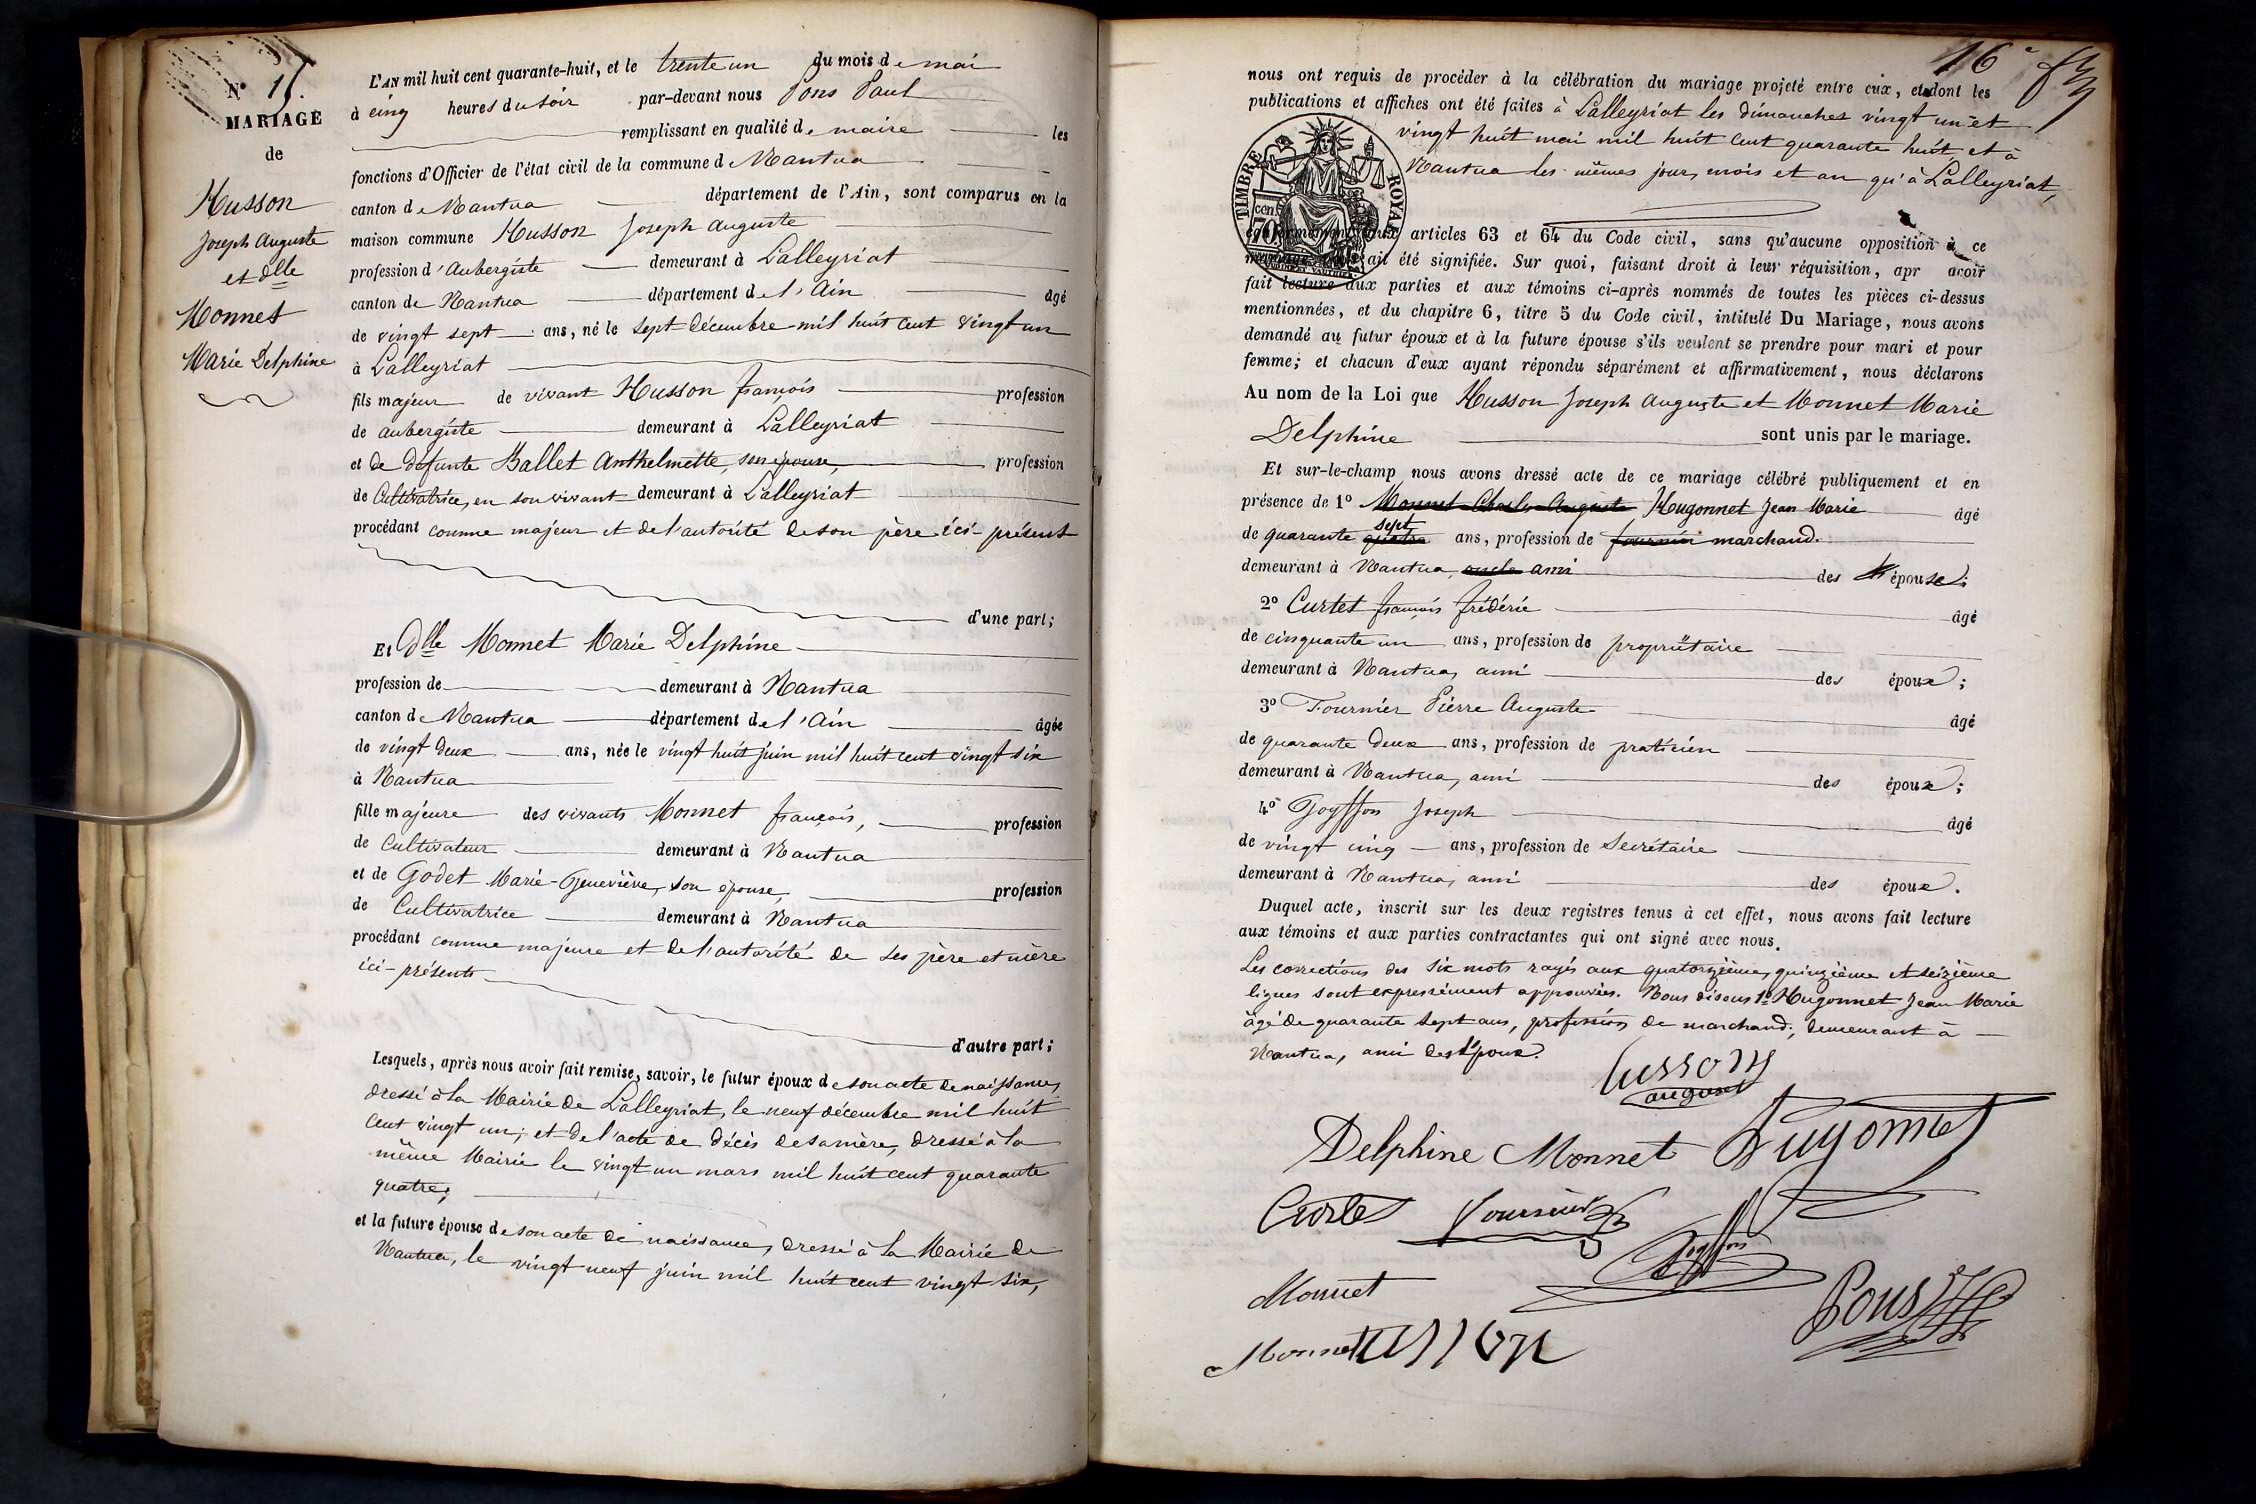 N° 15.
MARIAGE
de
Husson
Joseph Auguste
et dlle
Monnet
Marie Delphine
L'AN mil huit cent quarante-huit, et le trente un du mois de mai
à cinq heures du soir par-devant nous Pons Paul
remplissant en qualité de maire les
fonctions d'Officier de l'état civil de la commune de Nantua
canton de Nantua département de l'Ain, sont comparus en la
maison commune Husson Joseph Auguste
profession d'Aubergiste demeurant à Lalleyriat
canton de Nantua département de l'Ain âgé
de vingt sept ans, né le sept décembre mil huit cent vingt un
à Lalleyriat
fils majeur de vivant Husson françois profession
de aubergiste demeurant à Lalleyriat
et de défunte Ballet Anthelmette, son épouse, profession
de Cultivatrice, en son vivant demeurant à Lalleyriat
procédant comme majeur et de l'autorité de son père ici-présent
d'une part;
Et dlle Monnet Marie Delphine
profession de demeurant à Nantua
canton de Nantua département de l'Ain âgée
de vingt deux ans, née le vingt huit juin mil huit cent vingt six
à Nantua
fille majeure des vivants Monnet françois, profession
de Cultivateur demeurant à Nantua
et de Godet Marie-Geneviève, son épouse, profession
de Cultivatrice demeurant à Nantua
procédant comme majeure et de l'autorité de ses père et mère
ici-présents
d'autre part;
Lesquels, après nous avoir fait remise, savoir, le futur époux de son acte de naissance,
dressé à la Mairie de Lalleyriat, le neuf décembre mil huit
cent vingt un; et de l'acte de décès de sa mère, dressé à la
même Mairie le vingt un mars mil huit cent quarante
quatre;
et la future épouse de son acte de naissance, dressé à la Mairie de
Nantua, le vingt neuf juin mil huit cent vingt six,
16e
nous ont requis de procéder à la célébration du mariage projeté entre eux, et dont les
publications et affiches ont été faites à Lalleyriat les dimanches vingt un et
vingt huit mai mil huit cent quarante huit et à
Nantua les mêmes jour, mois et an qu'à Lalleyriat,
TIMBRE ROYAL
70 cen.
conformément aux articles 63 et 64 du Code civil, sans qu'aucune opposition à ce
mariage nous ait été signifiée. Sur quoi, faisant droit à leur réquisition, apr avoir
fait lecture aux parties et aux témoins ci-après nommés de toutes les pièces ci-dessus
mentionnées, et du chapitre 6, titre 5 du Code civil, intitulé Du Mariage, nous avons
demandé au futur époux et à la future épouse s'ils veulent se prendre pour mari et pour
femme; et chacun d'eux ayant répondu séparément et affirmativement, nous déclarons
Au nom de la Loi que Husson Joseph Auguste et Monnet Marie
Delphine sont unis par le mariage.
Et sur-le-champ nous avons dressé acte de ce mariage célébré publiquement et en
présence de 1° Monnet Charles Auguste Hugonnet Jean Marie âgé
de quarante quatre sept ans, profession de marchand.
demeurant à Nantua, oncle ami des épouse;
2° Curtet françois frédéric âgé
de cinquante un ans, profession de propriétaire
demeurant à Nantua, ami des époux;
3° Fournier Pierre Auguste âgé
de quarante deux ans, profession de praticien
demeurant à Nantua, ami des époux;
4° Goyffon Joseph âgé
de vingt cinq ans, profession de Secrétaire
demeurant à Nantua, ami des époux.
Duquel acte, inscrit sur les deux registres tenus à cet effet, nous avons fait lecture
aux témoins et aux parties contractantes qui ont signé avec nous.
Les corrections des six mots rayés aux quatorzième, quinzième et seizième
lignes sont expressément approuvées. Nous disons 1° Hugonnet Jean Marie
âgé de quarante sept ans, profession de marchand, demeurant à
Nantua, ami des époux.
husson
august
Delphine Monnet Hugonnet
Curtet fournier
Goyffon
Monnet
Pons
Monnet husson